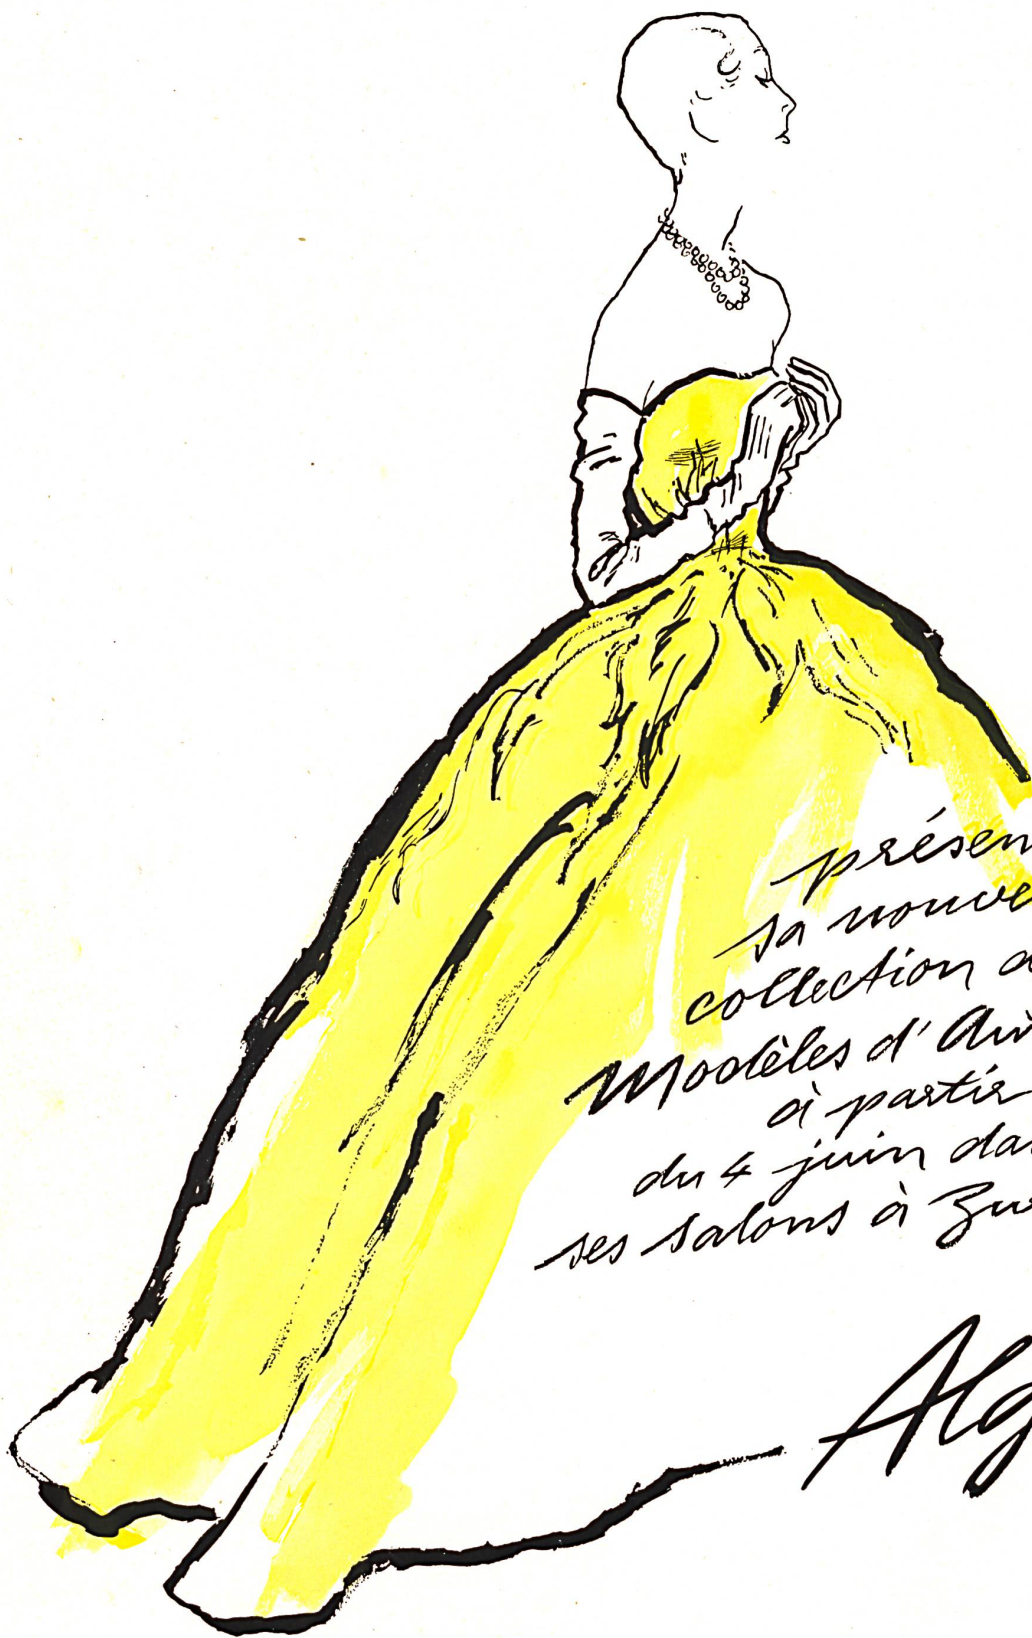 présen
sa nouve
collection d
Modèles d'Av
à partir
du 4 juin da
ses salons à Zu
Alg